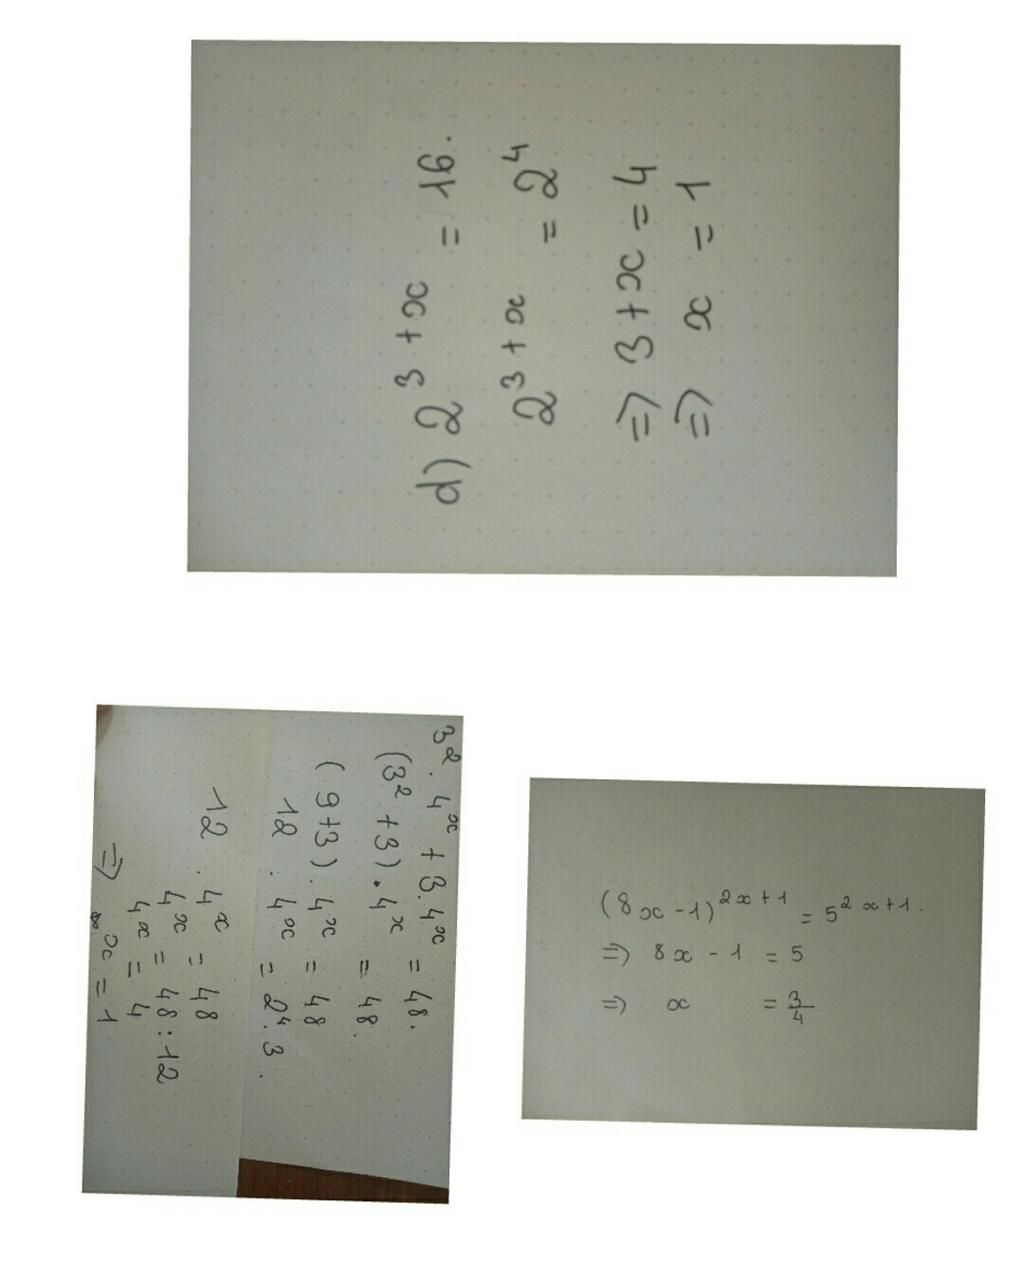 d) 2^{3+x} = 16.
2^{3+x} = 2^4
=> 3+x = 4
=> x = 1
3^2 . 4^x + 3.4^x = 48.
(3^2 + 3) . 4^x = 48.
(9+3) . 4^x = 48
12 . 4^x = 2^4.3.
12 . 4^x = 48
4^x = 48:12
4^x = 4
=> x = 1
(8x-1)^{2x+1} = 5^{2x+1}.
=> 8x - 1 = 5
=> x = \frac{3}{4}